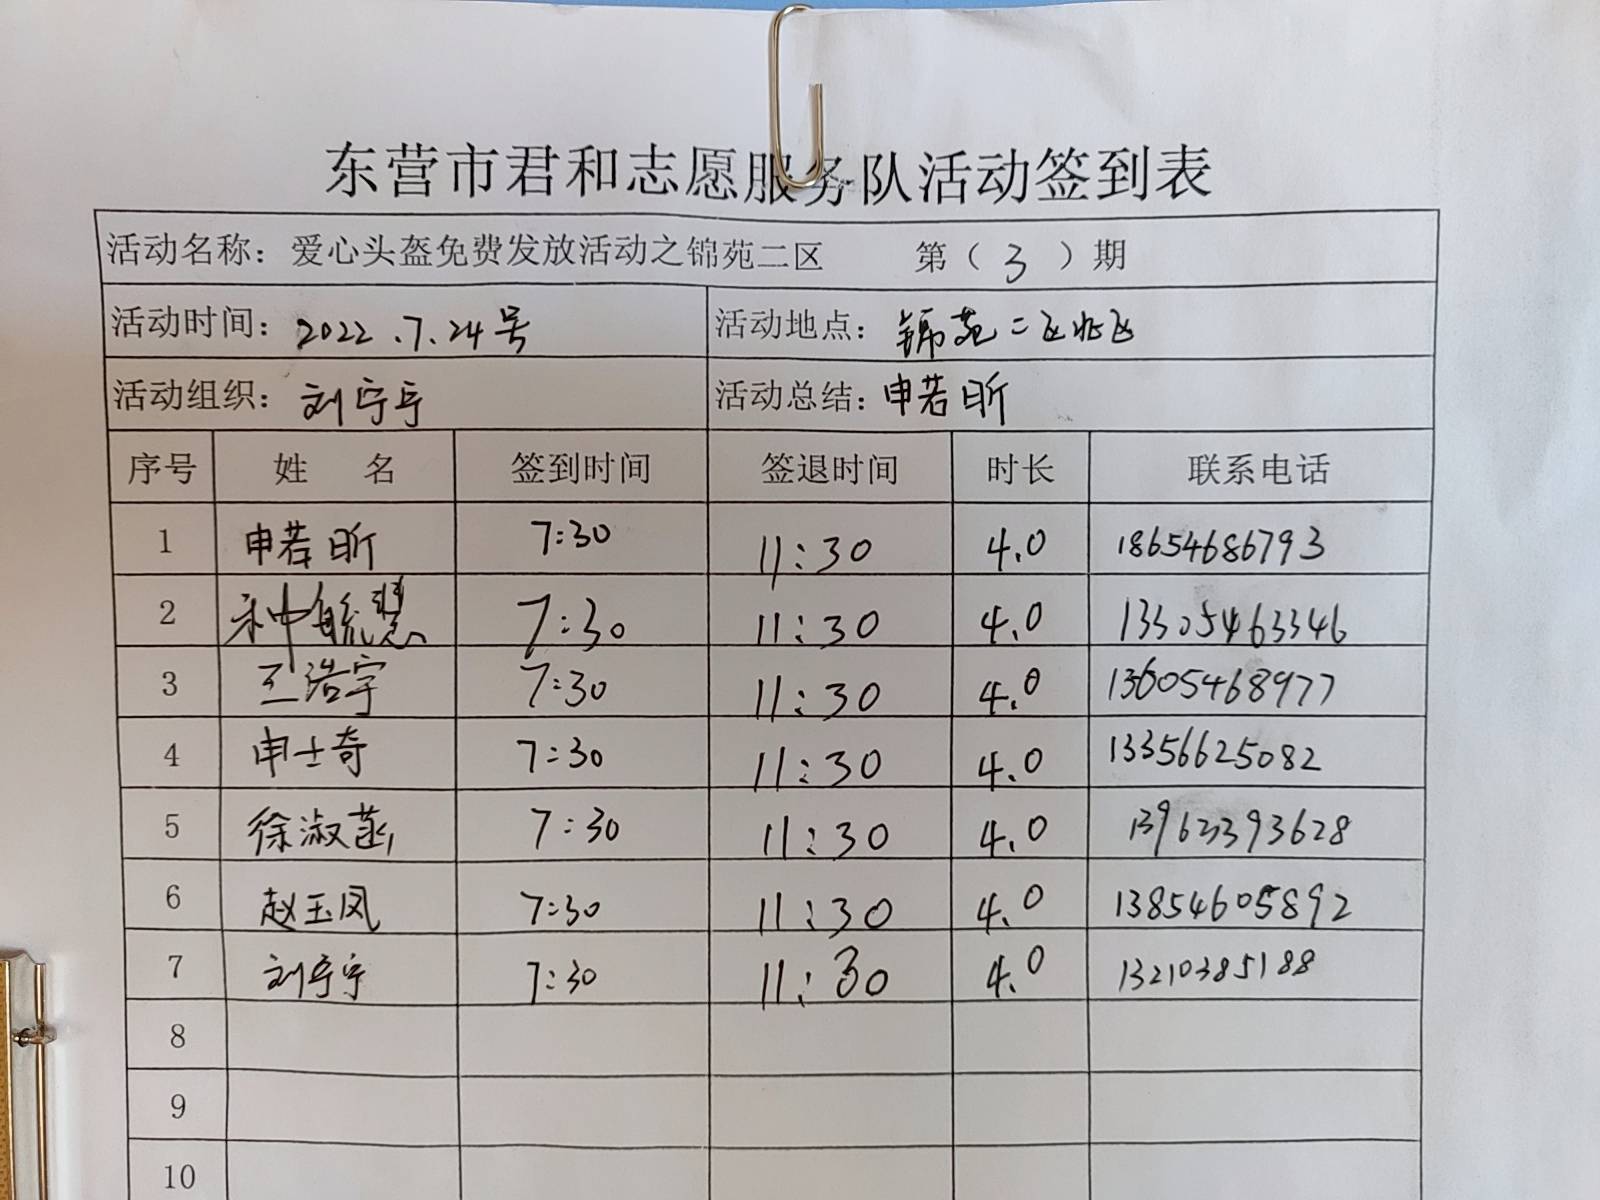 东营市君和志愿服务队活动签到表
活动名称：爱心头盔免费发放活动之锦苑二区 第（3）期
活动时间：2022.7.24号 活动地点：锦苑二区北区
活动组织：刘宁宁 活动总结：申若昕
序号 姓 名 签到时间 签退时间 时长 联系电话
1 申若昕 7:30 11:30 4.0 18654686793
2 种毓慧 7:30 11:30 4.0 13305463346
3 王浩宇 7:30 11:30 4.0 13605468977
4 申士奇 7:30 11:30 4.0 13356625082
5 徐淑菡 7:30 11:30 4.0
6 赵玉凤 7:30 11:30 4.0 13854605892
7 刘宁宁 7:30 11:30 4.0 13210385188
8
9
10